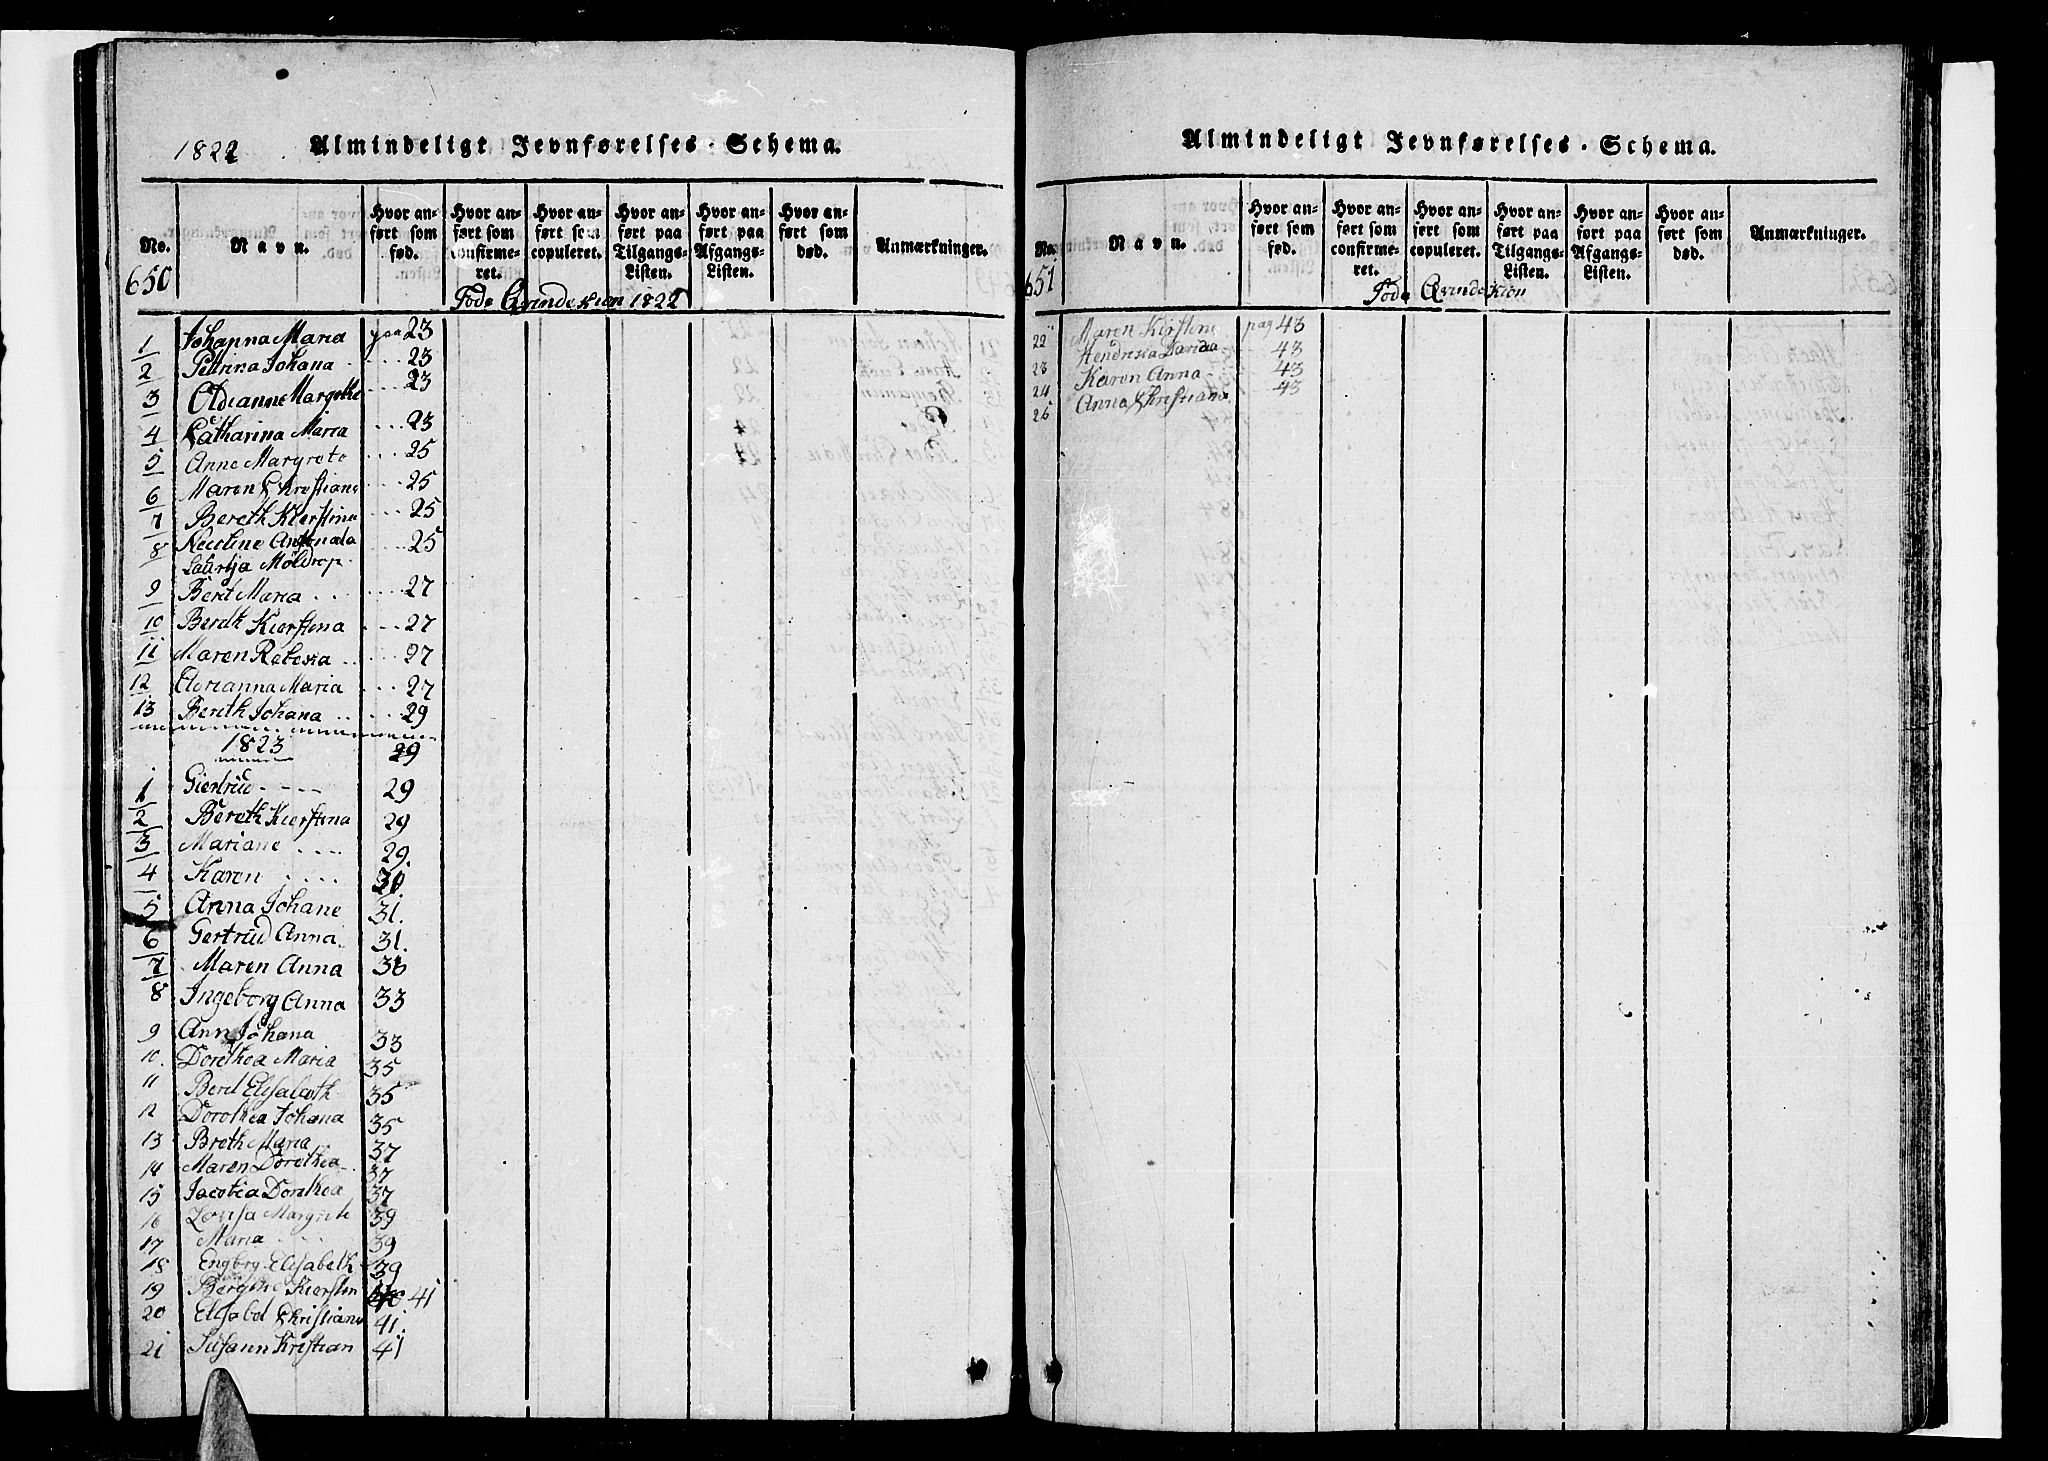 1822 Almindeligt Jevnførelses-Schema.
No. Navn. Hvor anført som fød. Hvor anført som confirmeret. Hvor anført som copuleret. Hvor anført paa Tilgangs-Listen. Hvor anført paa Afgangs-Listen. Hvor anført som død. Anmærkninger.
650
Føde Qvindekiøn 1822
1 Johanna Maria paa 23
2 Petrina Johana 23
3 Margrethe 23
4 Catharina Maria 23
5 Anne Margrete 25
6 Maren Christiane 25
7 Bereth Kierstina 25
8 Nicoline 25
Møldrop
9 Berit Maria 27
10 Bereth Kierstina 27
11 Maren Rebexia 27
12 Adrianna Maria 27
13 Bereth Johana 29
1823 29
1 Giertrud 29
2 Bereth Kierstina 29
3 Mariane 29.
4 Karen
5 Anna Johane 31.
6 Gertrud Anna 31.
7 Maren Anna
8 Ingeborg Anna 33
9 Ann Johana 33
10. Dorethea Maria 35
11 Beret Elisabeth 35
12 Dorothea Johana 35
13 Breth Maria 37
14 Maren Dorethea 37
15 Jacobia Dorethea 37
16 Lovisa Margrete 39
17 Maria 39
18 Engbrg Elisabeth 39
19 Kiersten 41
20 Elisabet Christiane 41.
21 Susann Kristian 41
Almindeligt Jevnførelses-Schema.
No. Navn. Hvor anført som fød. Hvor anført som confirmeret. Hvor anført som copuleret. Hvor anført paa Tilgangs-Listen. Hvor anført paa Afgangs-Listen. Hvor anført som død. Anmærkninger.
651
Føde Qvindekiøn
22 Maren Kirstine pag 43
23 Hendrikia 43
24 Karen Anna 43
25 Anna Christiane 43